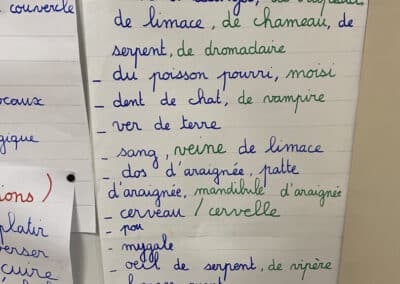 couvercle
de limace, de chameau, de
serpent, de dromadaire
- du poisson pourri, moisi
- dent de chat, de vampire
- ver de terre
- sang, veine de limace
- dos d'araignée, patte
d'araignée, mandibule d'araignée
- cerveau / cervelle
- pou
- mygale
- oeil de serpent, de vipère
ocaux
gique
ions)
platir
erser
cuire